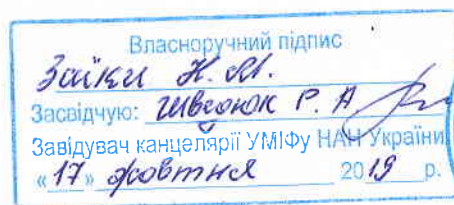 Власноручний підпис
Заїки Н. М.
Засвідчую: Шведюк Р. А
Завідувач канцелярії УМІФу НАН України
«17» жовтня 2019 р.